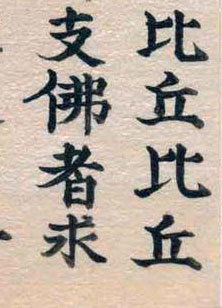 比丘比丘
支佛者求